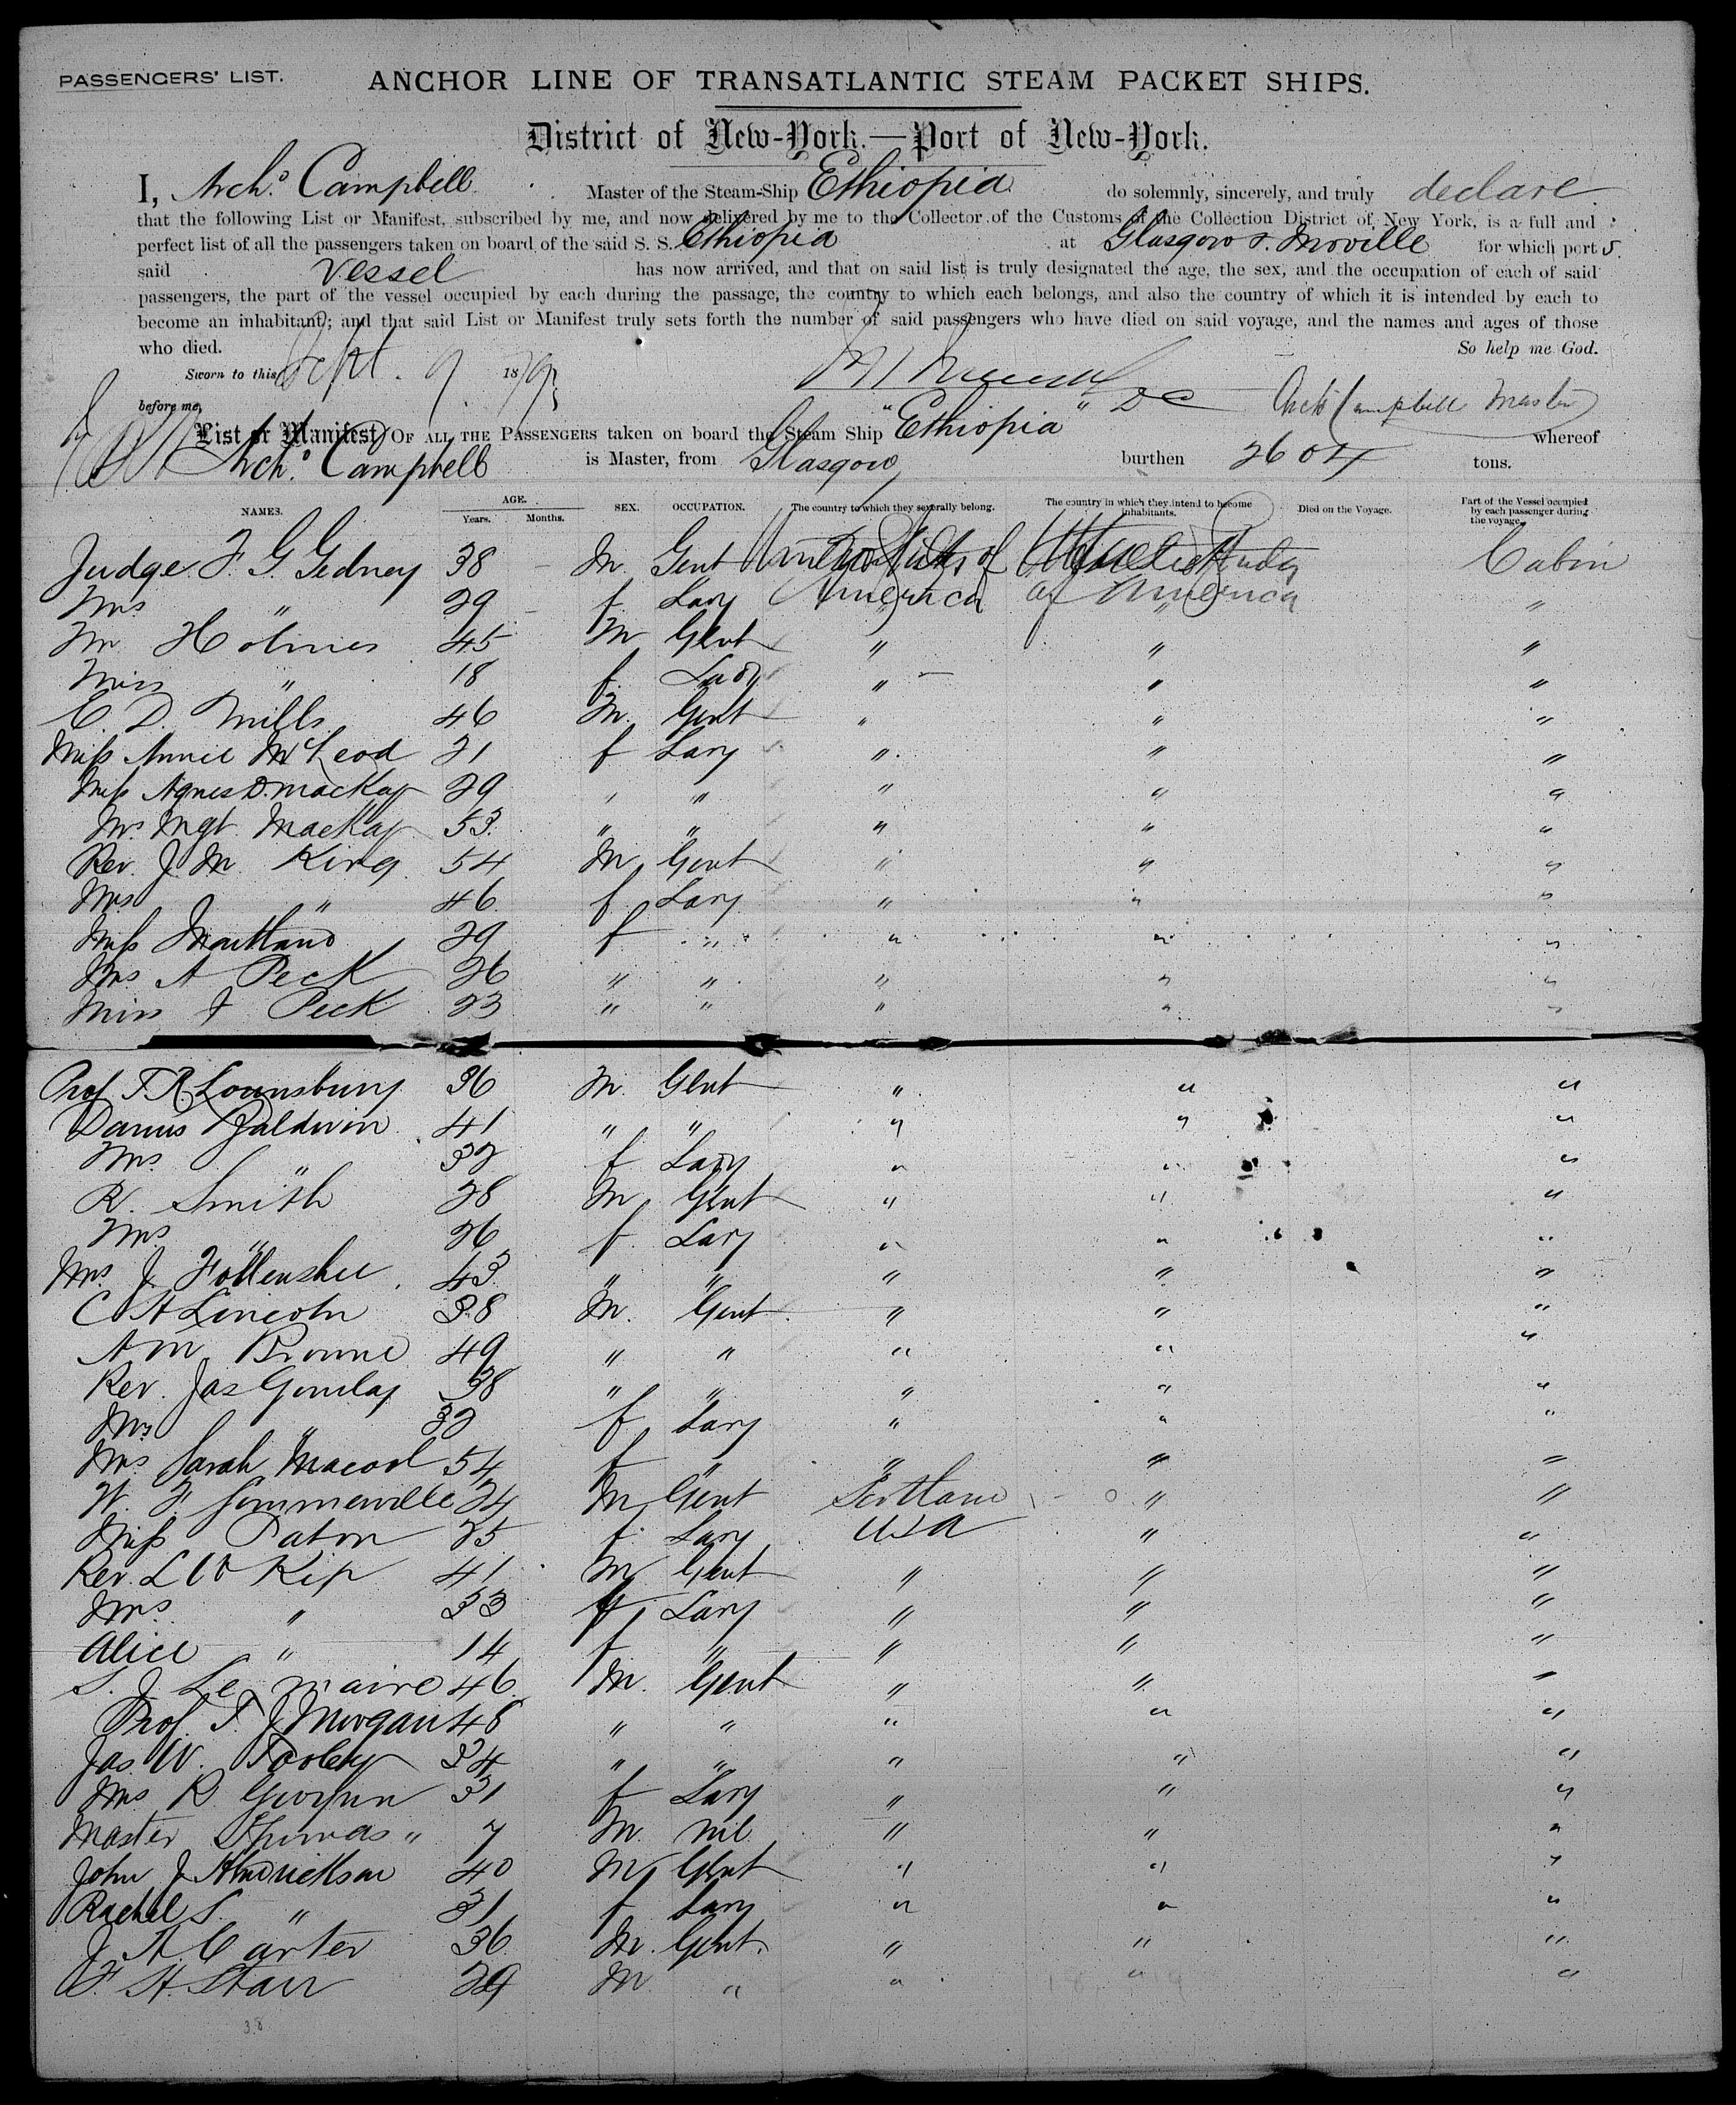 PASSENGERS' LIST.
ANCHOR LINE OF TRANSATLANTIC STEAM PACKET SHIPS.
District of New-York.—Port of New-York.
I, Archd. Campbell Master of the Steam-Ship Ethiopia do solemnly, sincerely, and truly declare
that the following List or Manifest, subscribed by me, and now delivered by me to the Collector of the Customs of the Collection District of New York, is a full and
perfect list of all the passengers taken on board of the said S. S. Ethiopia at Glasgow & Moville for which port s.
said vessel has now arrived, and that on said list is truly designated the age, the sex, and the occupation of each of said
passengers, the part of the vessel occupied by each during the passage, the country to which each belongs, and also the country of which it is intended by each to
become an inhabitant; and that said List or Manifest truly sets forth the number of said passengers who have died on said voyage, and the names and ages of those
who died. So help me God.
Sworn to this Sept. 9 1879
before me, Archd Campbell Master
List or Manifest OF ALL THE PASSENGERS taken on board the Steam Ship "Ethiopia" whereof
Archd. Campbell is Master, from Glasgow burthen 2604 tons.
NAMES. AGE. Years. Months. SEX. OCCUPATION. The country to which they severally belong. The country in which they intend to become inhabitants. Died on the Voyage. Part of the Vessel occupied by each passenger during the voyage.
Judge F. G. Gedney 38 - M. Gent United States of United States Cabin
Mrs " 29 - f. Lady America of America "
Mr Holmes 45 M Gent " " "
Miss " 18 f. Lady " " "
C. D. Mills 46 M. Gent " " "
Miss Annie McLeod 21 f Lady " " "
Miss Agnes D. Mackay 29 " " " " "
Mrs Mgt. Mackay 53 " " " " "
Rev. J. M. King 54 M. Gent " " "
Mrs " 46 f Lady " " "
Miss Maitland 29 f " " " "
Mrs A Peck 26 " " " " "
Miss J Peck 23 " " " " "
Prof T. R. Lounsbury 36 M. Gent " " "
Darius Baldwin 41 " " " " "
Mrs " 32 f Lady " " "
R. Smith 28 M Gent " " "
Mrs " 26 f. Lady " " "
Mrs. J. Follensbee 43 " " " " "
C H Lincoln 38 M. Gent " " "
A M Browne 49 " " " " "
Rev. Jas Gourlay 38 " " " " "
Mrs " 32 f Lady " " "
Mrs Sarah 54 f " " " "
W. F Sommerville 24 M Gent Scotland " "
Miss Paton 25 f. Lady USA " "
Rev. L W Kip 41 M Gent " " "
Mrs " 33 f Lady " " "
Alice " 14 f " " " "
S. J. Le maire 46 M. Gent " " "
Prof. T. J. Morgan 48 " " " " "
Jas. W. Tooley 34 " " " " "
Mrs R 31 f Lady " " "
Master Thomas " 7 M. nil " " "
John J Hendrickson 40 M Gent " " "
Rachel S. " 31 f Lady " " "
J. A Carter 36 M. Gent. " " "
F. H. Starr 29 M " " " "
38